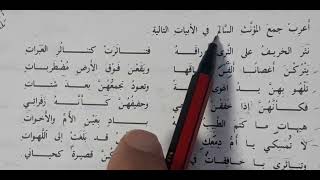 أعرب جمع المؤنث السالم في الأبيات التالية
نثر الخريف على الثرى فتناثرت كتناثر العبرات
يتركن أعصانا ويقعن فوق الأرض مضطربات
تلهو بهن يد وتعود تجمعهن بعد
فكأنهن إذا خفقن وحفيفهن كأنه زفراتي
هيهات ما كتم بعين الأم والأخوات
لا تمسكي يا أم دمعك قد بلغت إلى اللهوات
وتناثري يا خافقات قصيرة كحياتي